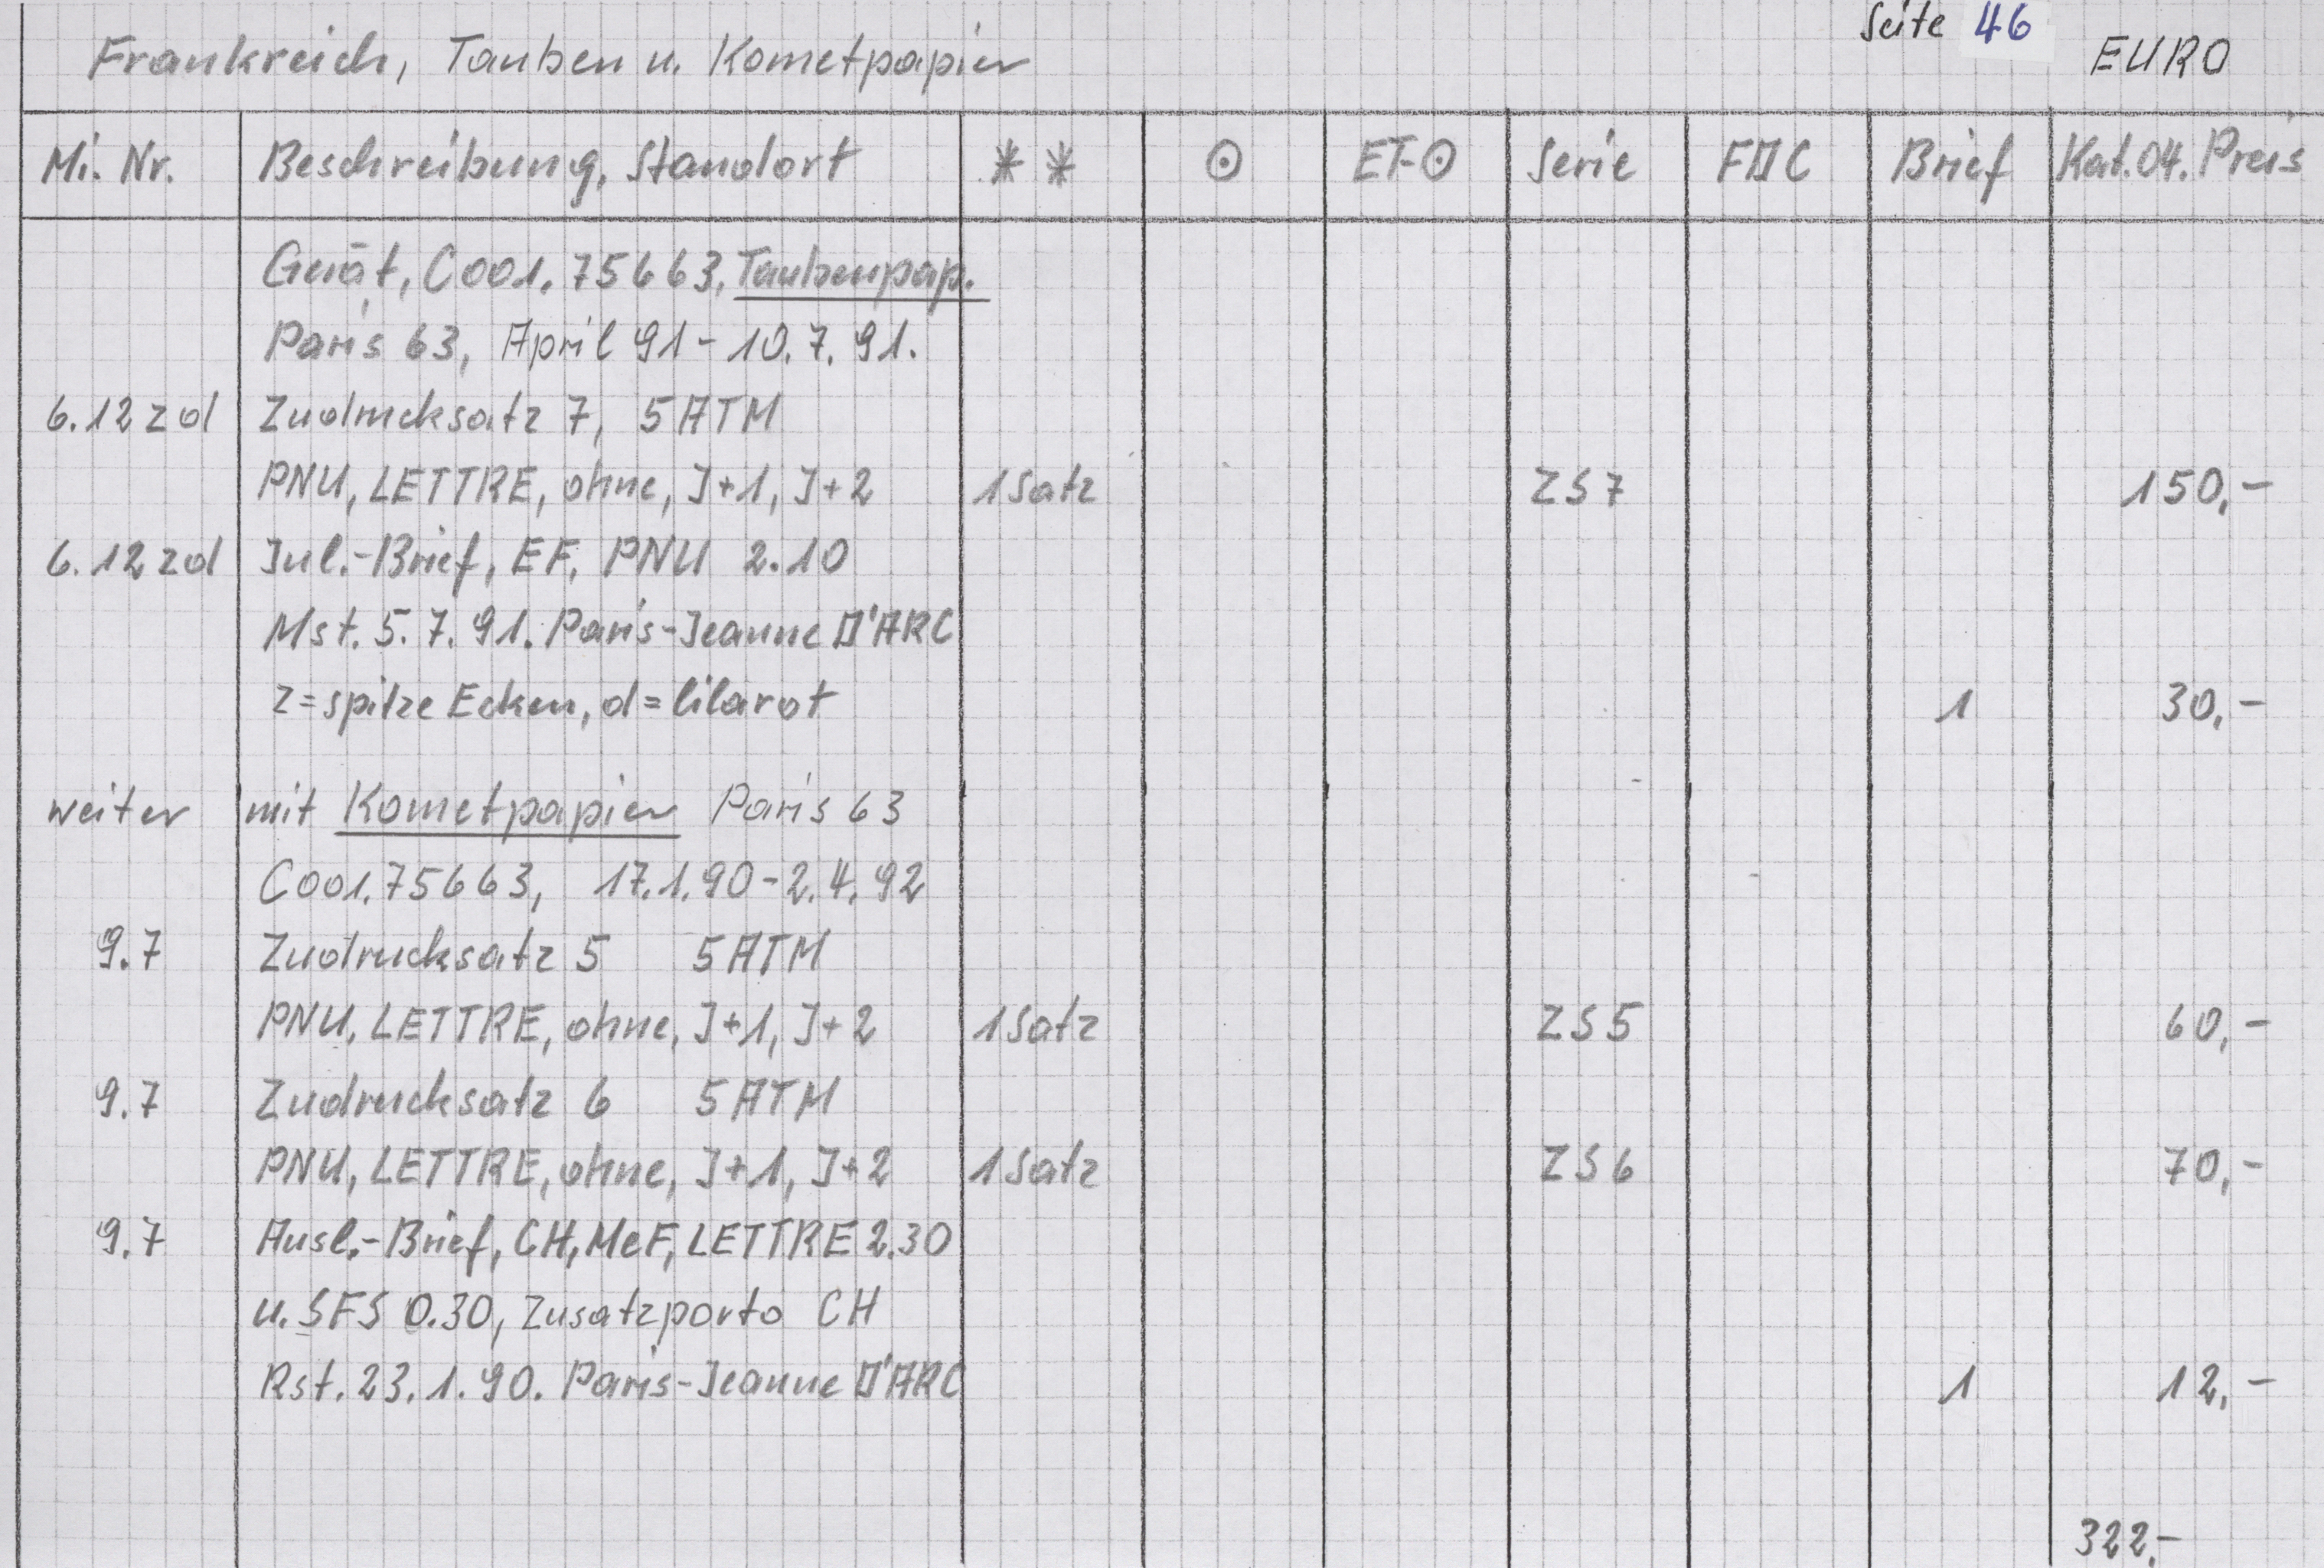 Seite 46
Frankreich, Tauben u. Kometpapier EURO
Mi. Nr. Beschreibung, Standort ** ⊙ ET-⊙ Serie FDC Brief Kat.04. Preis
Gerät, C001.75663, Taubenpap.
Paris 63, April 91 - 10.7.91.
6.12 zd Zudrucksatz 7, 5 ATM
PNU, LETTRE, ohne, J+1, J+2 1 Satz ZS 7 150,-
6.12 zd Inl.-Brief, EF, PNU 2.10
Mst. 5.7.91. Paris-Jeanne D'ARC
z = spitze Ecken, d = lilarot 1 30,-
weiter mit Kometpapier Paris 63
C001.75663, 17.1.90 - 2.4.92
9.7 Zudrucksatz 5 5 ATM
PNU, LETTRE, ohne, J+1, J+2 1 Satz ZS 5 60,-
9.7 Zudrucksatz 6 5 ATM
PNU, LETTRE, ohne, J+1, J+2 1 Satz ZS 6 70,-
9.7 Ausl.-Brief, CH, MeF, LETTRE 2.30
u. SFS 0.30, Zusatzporto CH
Rst. 23.1.90. Paris-Jeanne D'ARC 1 12,-
322,-